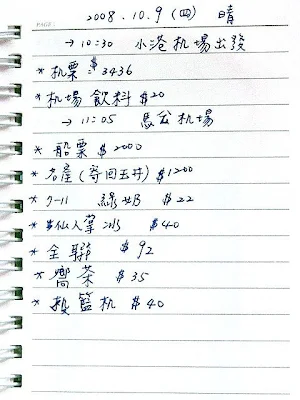 2008.10.9 (四) 晴
→ 10:30 小港机場出發
* 机票 $3436
* 机場飲料 $20
→ 11:05 馬公机場
* 船票 $2000
* 名產(寄回玉井) $1200
* 7-11 綠 $22
* 仙人掌冰 $40
* 全聯 $92
* 茶 $35
* 投籃机 $40